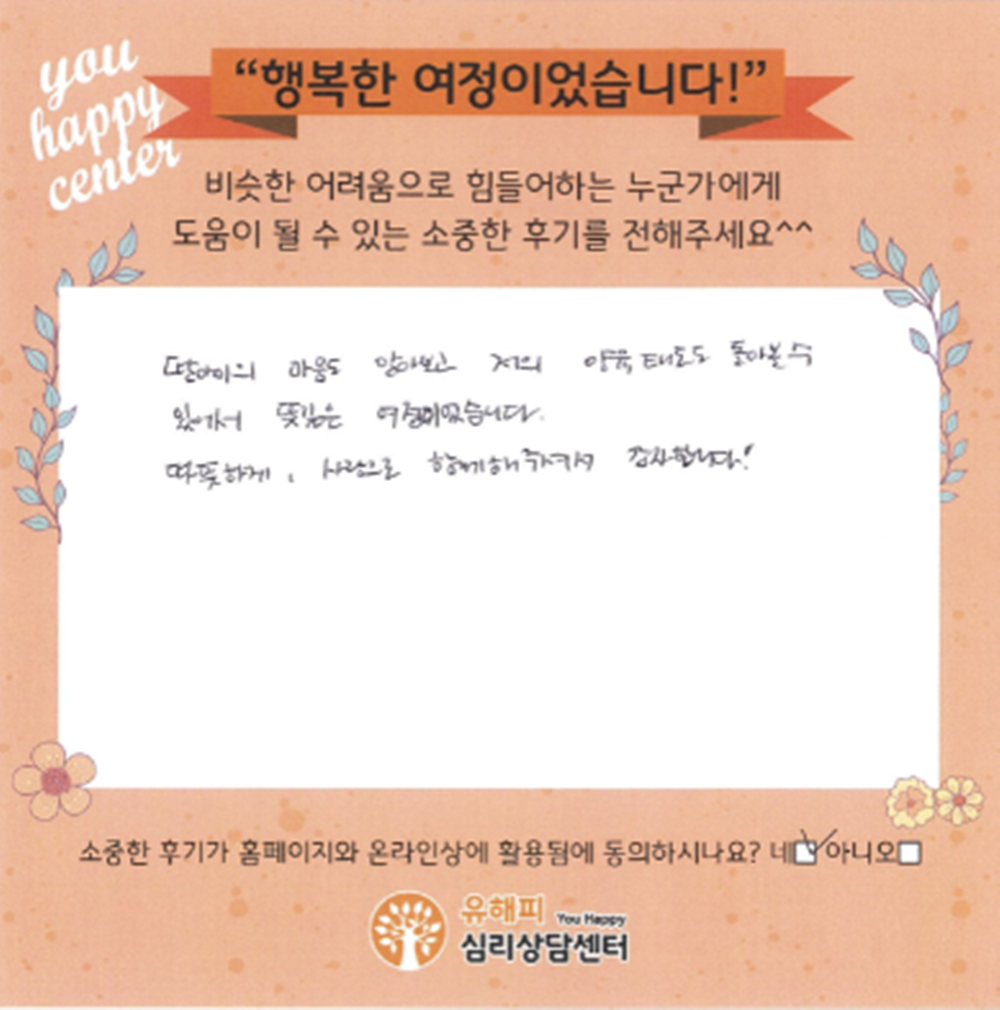 you
happy
center
“행복한 여정이었습니다!”
비슷한 어려움으로 힘들어하는 누군가에게
도움이 될 수 있는 소중한 후기를 전해주세요^^
딸아이의 마음도 알아보고 저의 양육태도도 돌아볼 수
있어서 뜻깊은 여정이었습니다.
따뜻하게, 사랑으로 함께해주셔서 감사합니다!
소중한 후기가 홈페이지와 온라인상에 활용됨에 동의하시나요? 네☑아니오☐
유해피 You Happy
심리상담센터